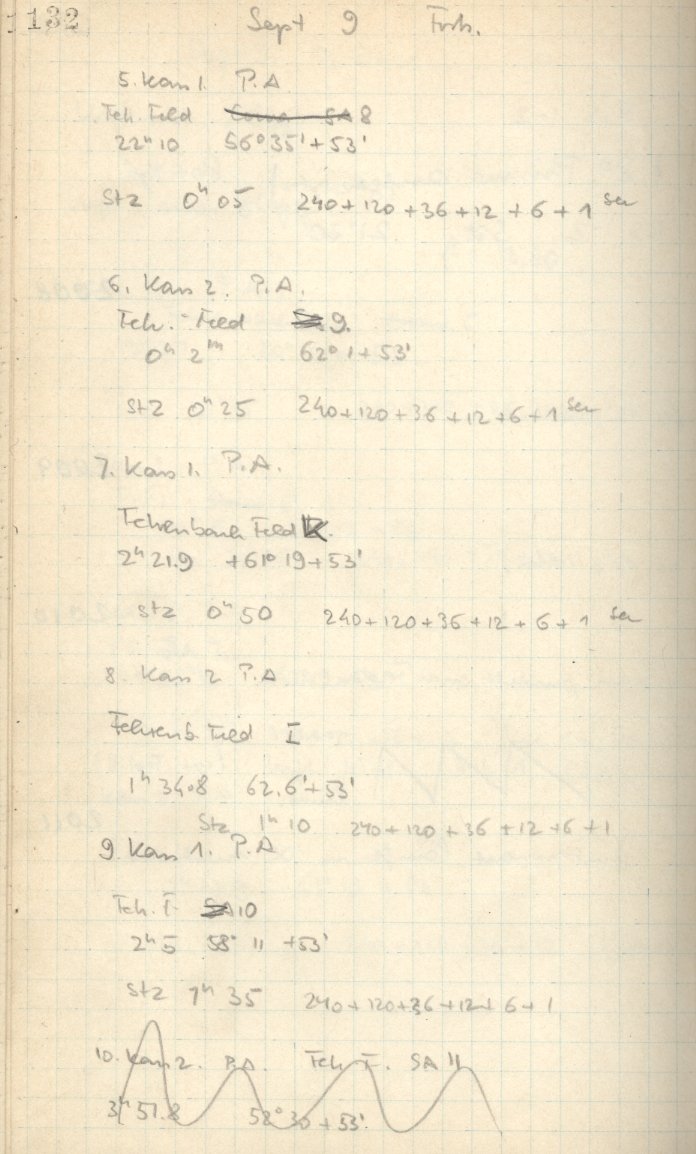 132 Sept 9
5. Kass 1. P.A
Feh. Feld 8
22h 10 56° 35' + 53'
Stz 0h 05 240 + 120 + 36 + 12 + 6 + 1 sec
6. Kass 2. P.A.
Feh. - Feld 9.
0h 2m 62° 1 + 53'
Stz 0h 25 240 + 120 + 36 + 12 + 6 + 1 sec
7. Kass 1. P.A.
Fehrenbach Feld
2h 21.9 + 61° 19 + 53'
Stz 0h 50 240 + 120 + 36 + 12 + 6 + 1 sec
8. Kass 2 P.A
Fehrenb. Feld I
1h 34.8 62.6' + 53'
Stz 1h 10 240 + 120 + 36 + 12 + 6 + 1
9. Kass 1. P.A
Feh. I SA 10
2h 5 58° 11 + 53'
Stz 1h 35 240 + 120 + 36 + 12 + 6 + 1
10. Kass 2. P.A. Feh. I. SA 11
3h 51.8 58° 30 + 53'